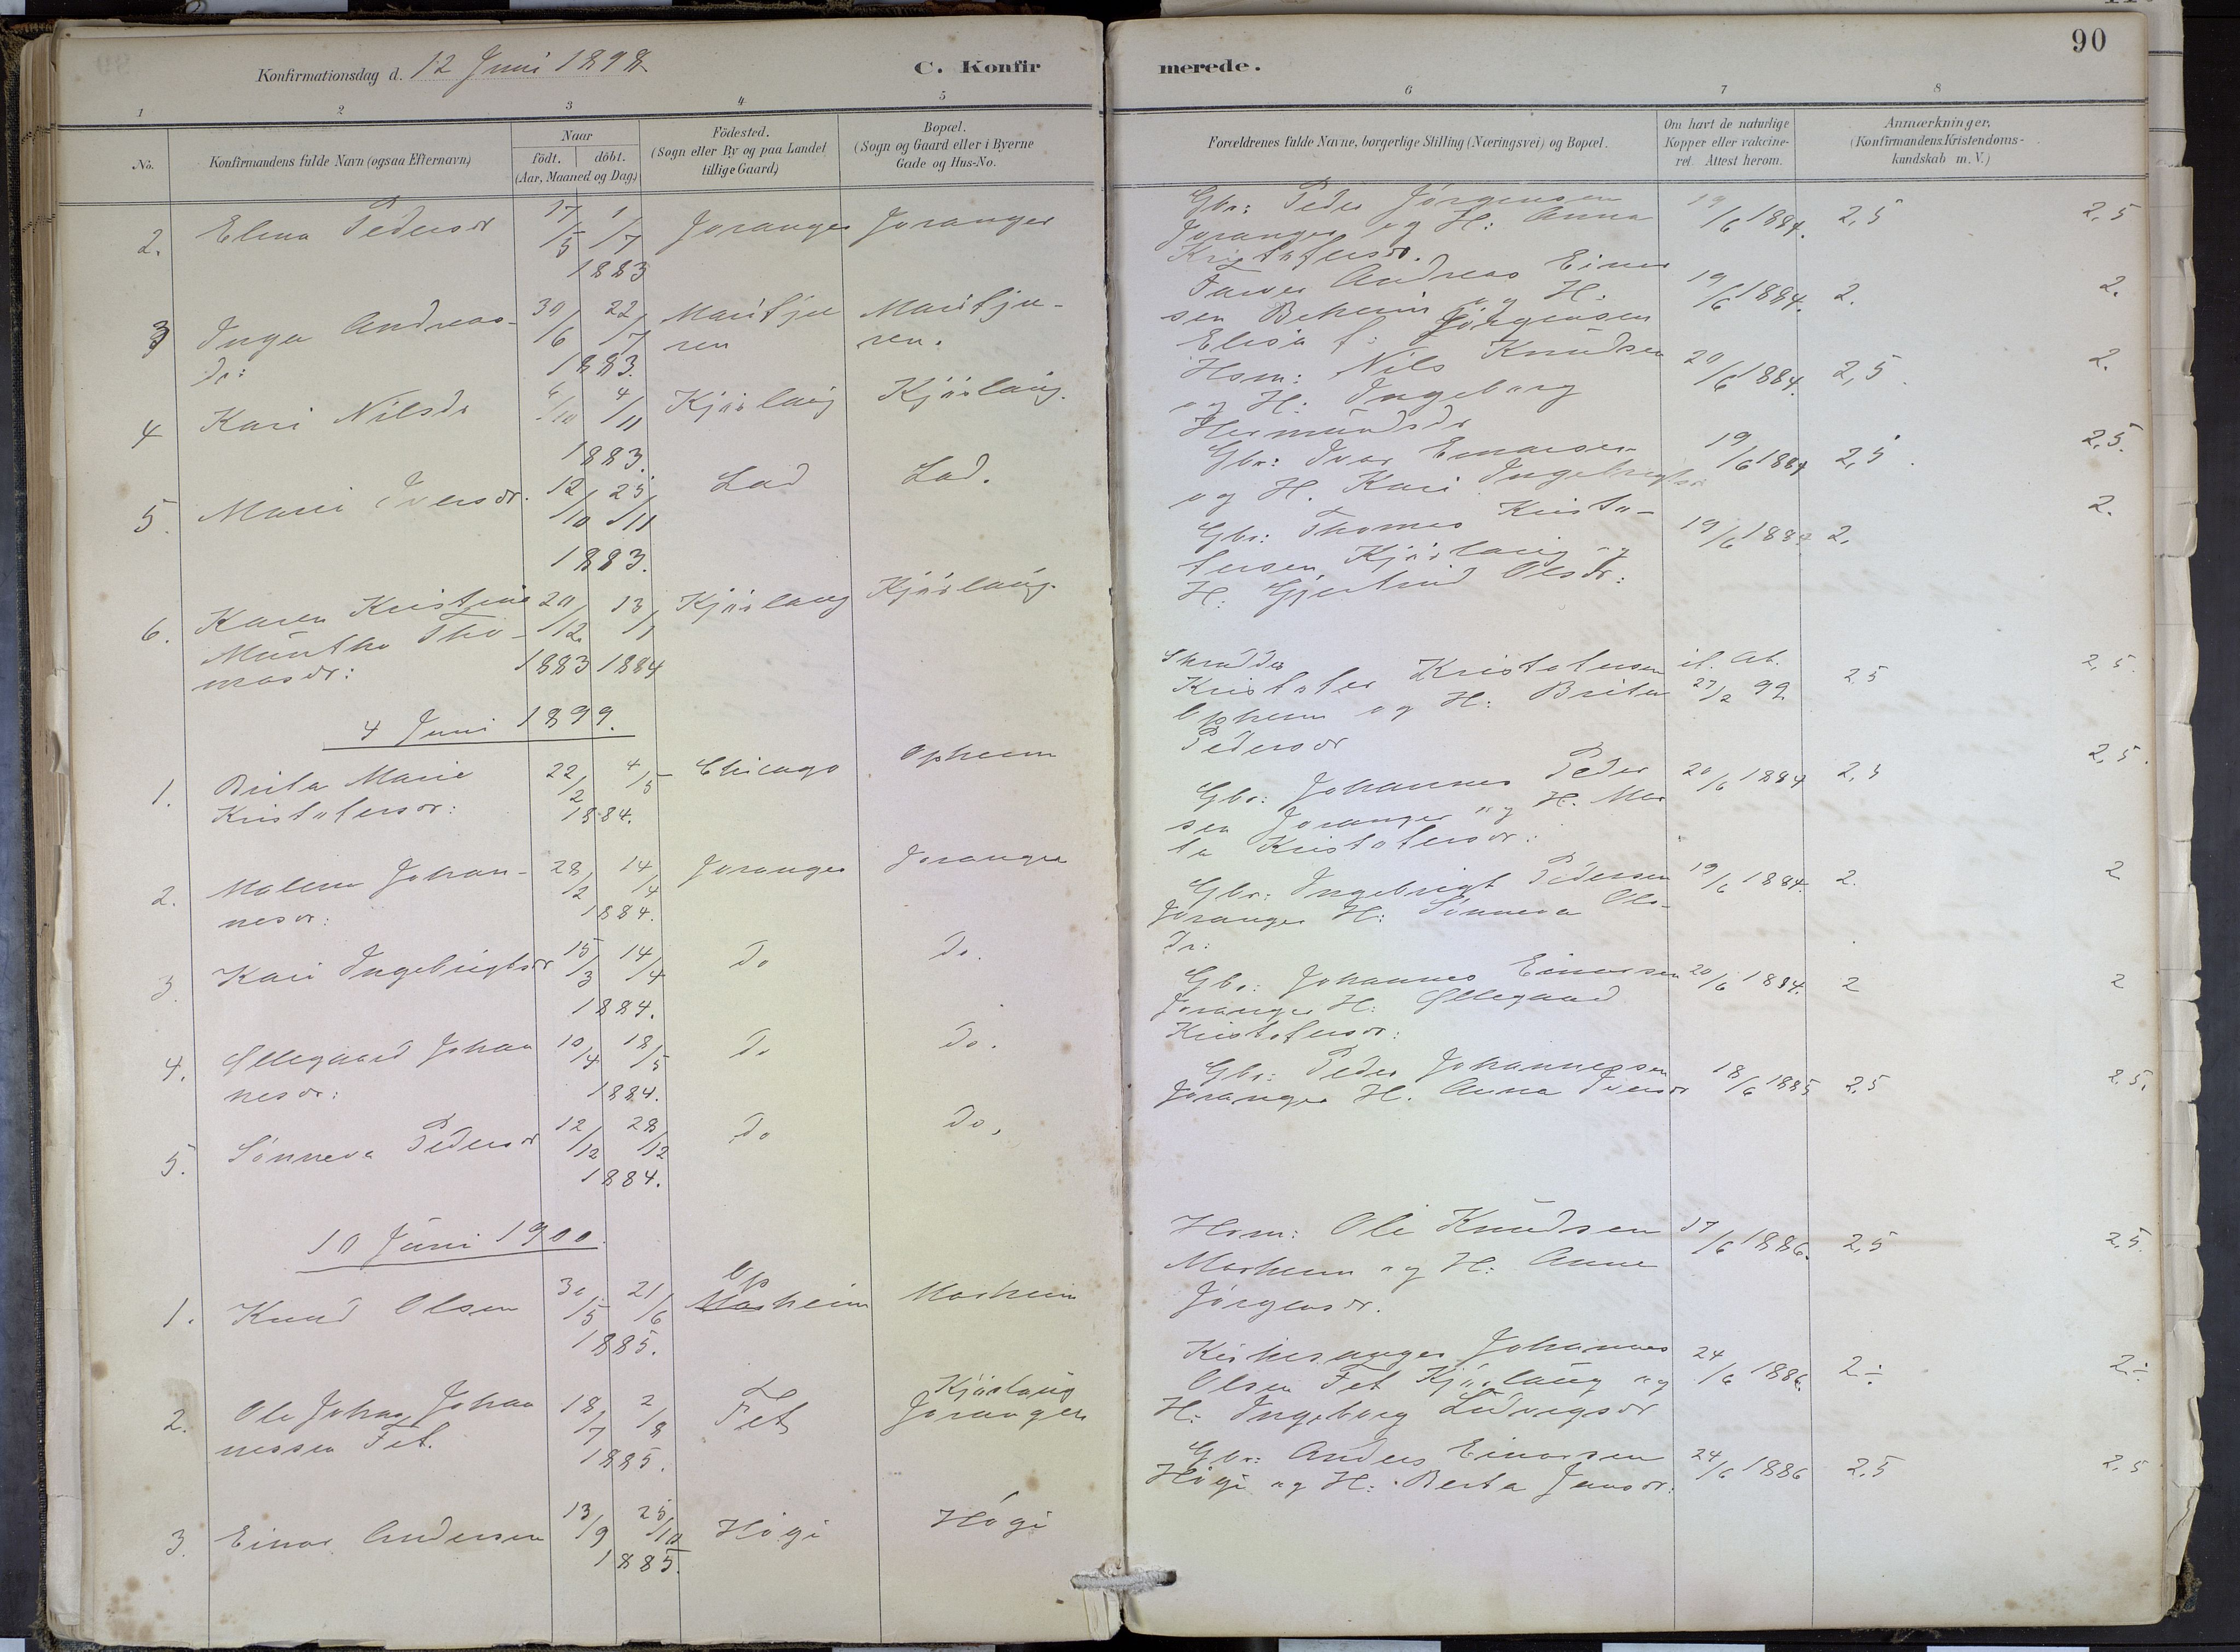 90
Konfirmationsdag d. 12 Juni 1898
C. Konfir
merede.
1 2 3 4 5 6 7 8
No.
Konfirmandens fulde Navn (ogsaa Efternavn)
Naar
födt. döbt.
(Aar, Maaned og Dag)
Födested.
(Sogn eller By og paa Landet
tillige Gaard)
Bopæl.
(Sogn og Gaard eller i Byerne
Gade og Hus-No.
Forældrenes fulde Navne, borgerlige Stilling (Næringsvei) og Bopæl.
Om havt de naturlige
Kopper eller vakcine-
ret. Attest herom.
Anmærkninger.
(Konfirmandens Kristendoms-
kundskab m. V.)
2. Elena Pedersdr 17/5 1/7 Joranger Joranger
1883
Gbr: Peder Jörgensen 19/6 1884. 2,5 2,5
Joranger og H: Anna
Kristofersdr.
3 Inga Andreas- 30/6 22/7 Marifjæ Marifjæ-
dr: 1883. ren ren.
Farver Andreas Einar 19/6 1884. 2. 2.
sen Beheim og H:
Elisa f: Jörgensen
4 Kari Nilsdr 6/10 4/11 Kjörlaug Kjörlaug.
1883.
Hsm: Nils Knudsen 20/6 1884. 2,5. 2.
og H: Ingeborg
Hermundsdr
5. Mari Iversdr. 12/10 25/11 Lad Lad.
1883.
Gbr: Ivar Einarsen 19/6 1884 2,5. 2,5.
og H. Kari Ingebrigtsdr
6. Karen Kristine 20/12 13/1 Kjörlaug Kjörlaug.
Münthe Tho- 1883 1884
masdr:
Gbr: Thomas Kristo- 19/6 1884 2. 2.
fersen Kjörlaug og
H: Gjertrud Olsdr:
4 Juni 1899.
1. Brita Marie 22/2 4/5 Chicago Opheim
Kristofersdr: 1884.
Skrædder
Kristofer Kristofersen if. At. 27/2 99 2.5 2,5.
Opheim og H: Brita
Pedersdr
2. Malena Johan- 28/2 14/4 Joranger Joranger
nesdr: 1884.
Gbr: Johannes Peder 20/6 1884 2,5 2,5.
sen Joranger og H. Mar
ta Kristofersdr:
3. Kari Ingebrigtsdr 15/3 14/4 do do.
1884.
Gbr: Ingebrigt Pedersen 19/6 1884. 2. 2
Joranger H: Sönneva Ols-
dr:
4. Øllegaard Johan 10/4 18/5 do do.
nesdr: 1884.
Gbr: Johannes Einarsen 20/6 1884. 2 2
Joranger H: Øllegaard
Kristofersdr:
5. Sönneva Pedersdr 12/12 28/12 do do,
1884.
Gbr: Peder Johannessen 18/6 1885 2,5 2.5.
Joranger H. Anna Iversdr
10 Juni 1900.
1. Knud Olsen 30/5 21/6 Op Morheim Morheim
1885.
Hsm: Ole Knudsen 17/6 1886. 2,5 2,5.
Morheim og H: Anne
Jörgensdr.
2. Ole Johan Johan 18/7 2/8 Fet Kjörlaug Joranger
nessen Fet. 1885.
Kirkesanger Johannes 24/6 1886. 2÷ 2÷
Olsen Fet Kjörlaug og
H: Ingeborg Ludvigsdr
3. Einar Andersen 13/9 25/10 Högi Högi
1885.
Gbr: Anders Einarsen 24/6 1886 2.5 2,5
Högi og H: Berta Jensdr: